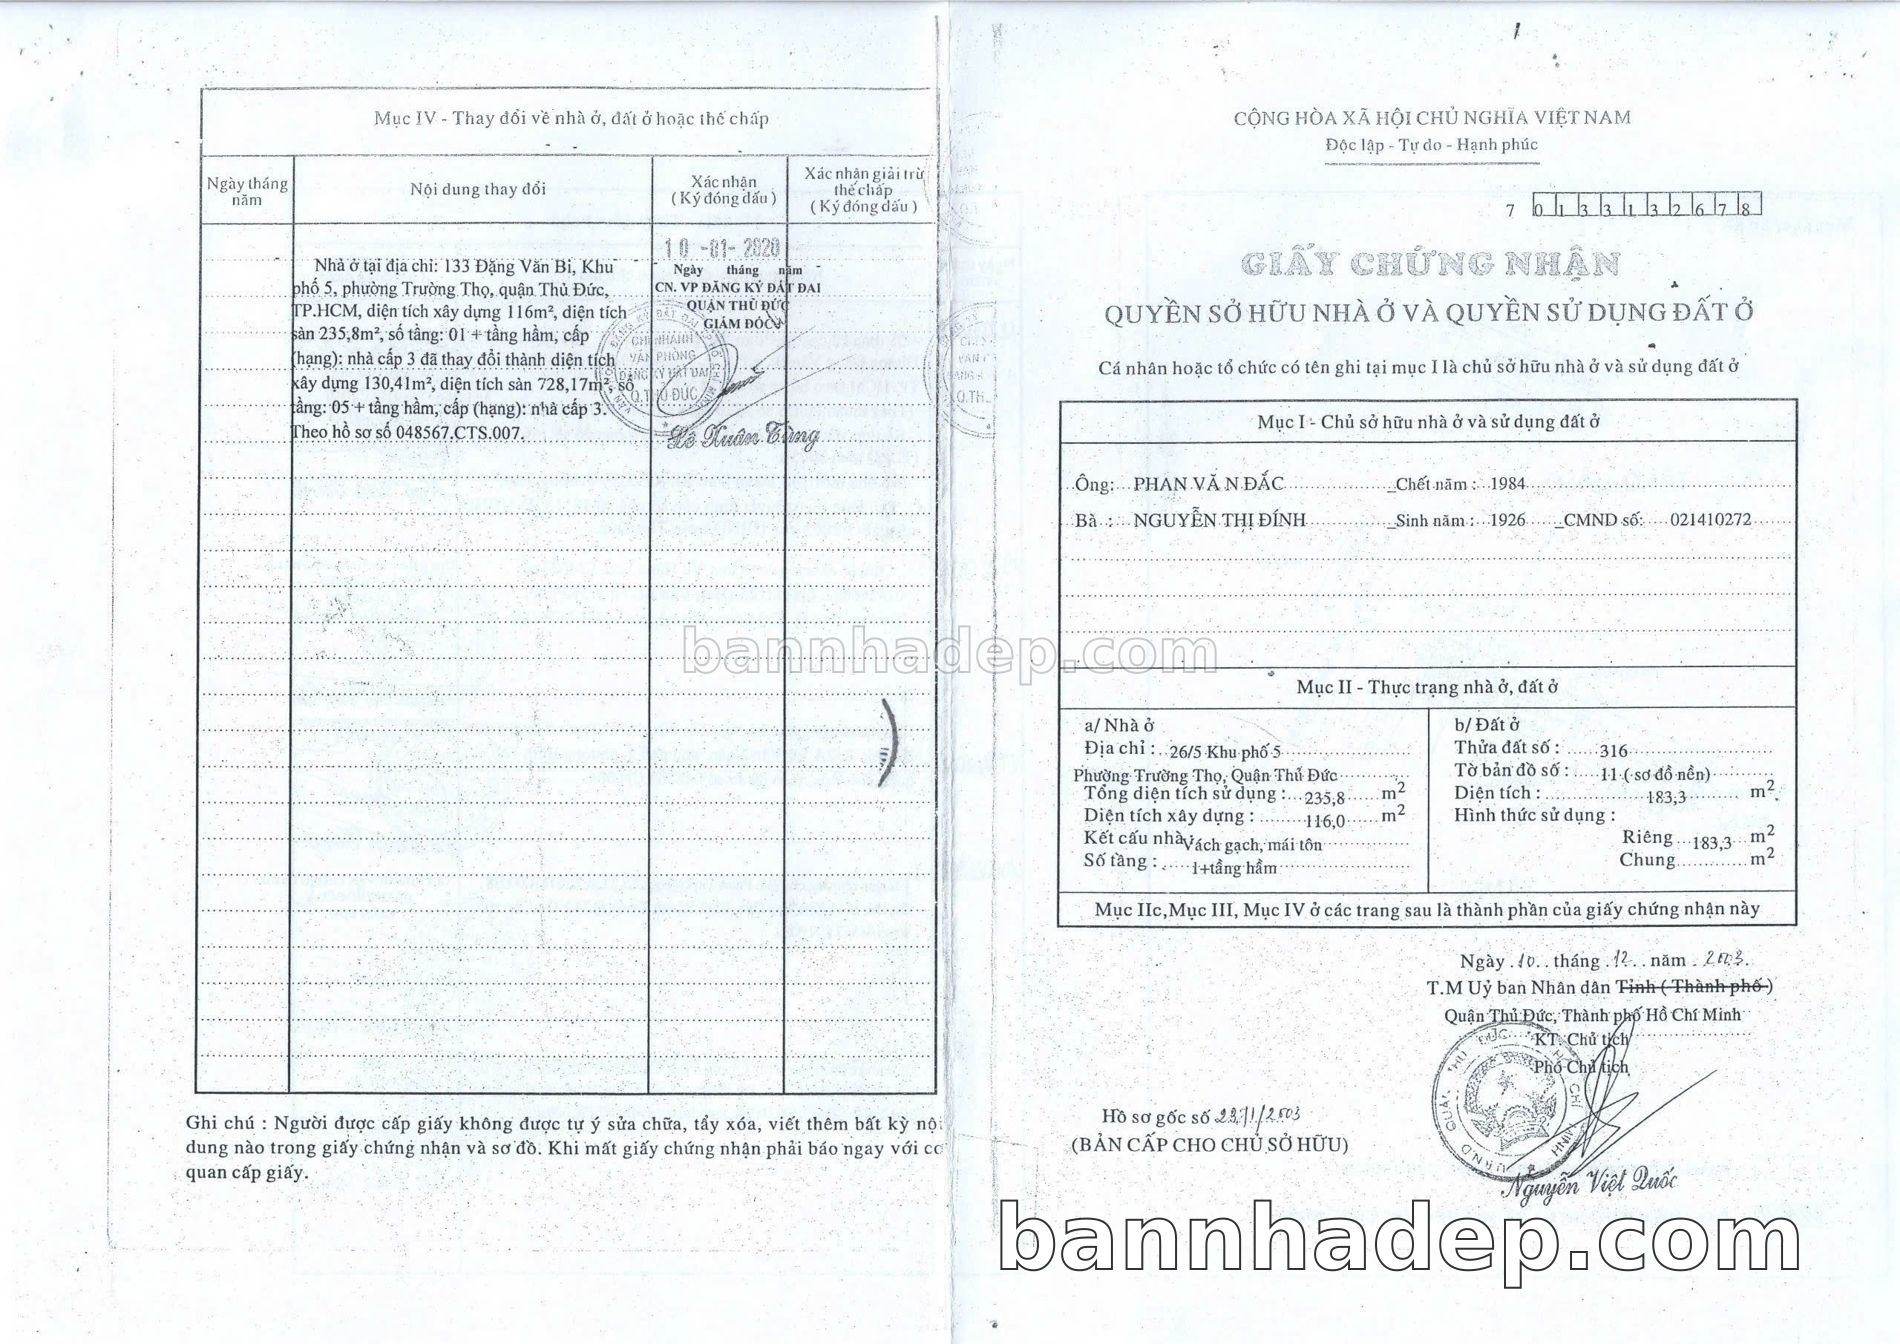 Mục IV - Thay đổi về nhà ở, đất ở hoặc thế chấp
Ngày tháng năm
Nội dung thay đổi
Xác nhận
( Ký đóng dấu )
Xác nhận giải trừ
thế chấp
( Ký đóng dấu )
Nhà ở tại địa chỉ: 133 Đặng Văn Bi, Khu
phố 5, phường Trường Thọ, quận Thủ Đức,
TP.HCM, diện tích xây dựng 116m², diện tích
sàn 235,8m², số tầng: 01 + tầng hầm, cấp
(hạng): nhà cấp 3 đã thay đổi thành diện tích
xây dựng 130,41m², diện tích sàn 728,17m², số
tầng: 05 + tầng hầm, cấp (hạng): nhà cấp 3.
Theo hồ sơ số 048567.CTS.007.
10 -01- 2020
Ngày tháng năm
CN. VP ĐĂNG KÝ ĐẤT ĐAI
QUẬN THỦ ĐỨC
GIÁM ĐỐC
CHI NHÁNH
VĂN PHÒNG
ĐĂNG KÝ ĐẤT ĐAI
Q.THỦ ĐỨC
Lê Xuân Tùng
Ghi chú : Người được cấp giấy không được tự ý sửa chữa, tẩy xóa, viết thêm bất kỳ nội
dung nào trong giấy chứng nhận và sơ đồ. Khi mất giấy chứng nhận phải báo ngay với cơ
quan cấp giấy.
CỘNG HÒA XÃ HỘI CHỦ NGHĨA VIỆT NAM
Độc lập - Tự do - Hạnh phúc
7 0133132678
GIẤY CHỨNG NHẬN
QUYỀN SỞ HỮU NHÀ Ở VÀ QUYỀN SỬ DỤNG ĐẤT Ở
Cá nhân hoặc tổ chức có tên ghi tại mục I là chủ sở hữu nhà ở và sử dụng đất ở
Mục I - Chủ sở hữu nhà ở và sử dụng đất ở
Ông: PHAN VĂN ĐẮC _Chết năm : 1984
Bà : NGUYỄN THỊ ĐÍNH _Sinh năm : 1926 _CMND số: 021410272
Mục II - Thực trạng nhà ở, đất ở
a/ Nhà ở
Địa chỉ : 26/5 Khu phố 5
Phường Trường Thọ, Quận Thủ Đức
Tổng diện tích sử dụng : 235,8 m2
Diện tích xây dựng : 116,0 m2
Kết cấu nhà: Vách gạch, mái tôn
Số tầng : 1+tầng hầm
b/ Đất ở
Thửa đất số : 316
Tờ bản đồ số : 11 ( sơ đồ nền)
Diện tích : 183,3 m2
Hình thức sử dụng :
Riêng 183,3 m2
Chung m2
Mục IIc,Mục III, Mục IV ở các trang sau là thành phần của giấy chứng nhận này
Ngày 10 tháng 12 năm 2003
T.M Uỷ ban Nhân dân Tỉnh ( Thành phố )
Quận Thủ Đức, Thành phố Hồ Chí Minh
KT. Chủ tịch
Phó Chủ tịch
Nguyễn Việt Quốc
Hồ sơ gốc số
(BẢN CẤP CHO CHỦ SỞ HỮU)
bannhadep.com
bannhadep.com